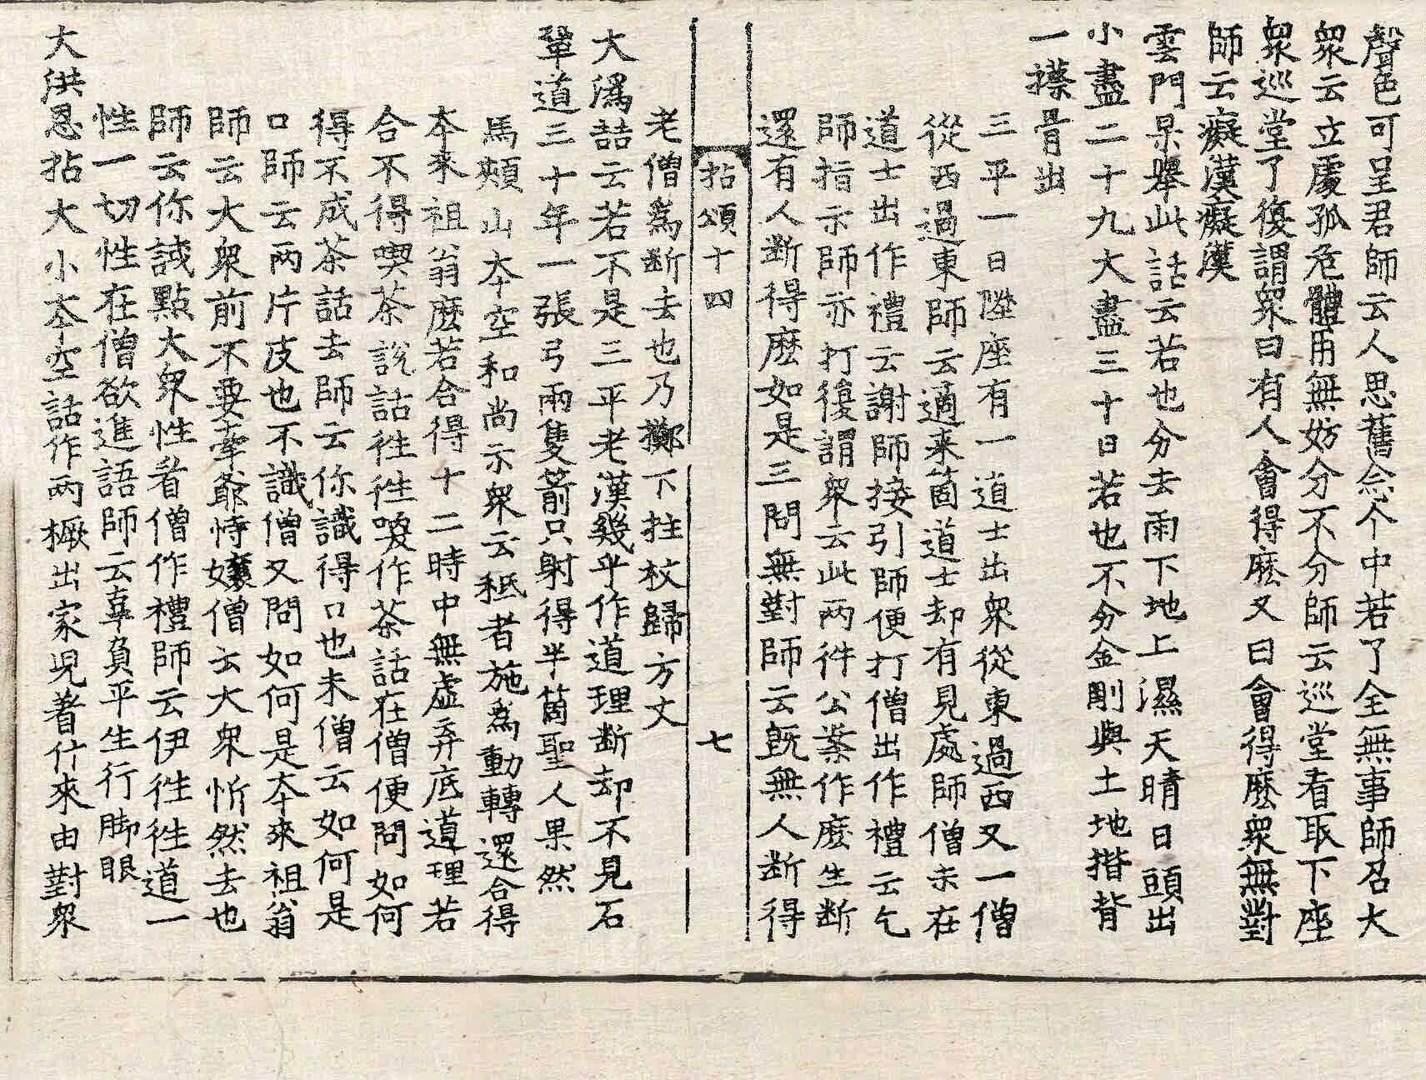 聲色可呈君師云人思舊念个中若了全無事師召大
衆云立處孤危體用無妨分不分師云巡堂看取下座
衆巡堂了復謂衆曰有人會得麽又曰會得麽衆無對
師云癡漢癡漢
雲門杲擧此話云若也分去雨下地上濕天晴日頭出
小盡二十九大盡三十日若也不分金剛與土地揩背
一擦骨出
三平一日陞座有一道士出衆從東過西又一僧
從西過東師云適来箇道士却有見處師僧未在
道士出作禮云謝師接引師便打僧出作禮云乞
師指示師亦打復謂衆云此兩件公案作麽生斷
還有人斷得麽如是三問無對師云旣無人斷得
拈頌十四 七
老僧爲斷去也乃擲下拄杖歸方丈
大潙喆云若不是三平老漢幾乎作道理斷却不見石
鞏道三十年一張弓兩隻箭只射得半箇聖人果然
馬頰山夲空和尚示衆云秪者施爲動轉還合得
夲來祖翁麽若合得十二時中無虛弃底道理若
合不得喫茶說話徃徃喚作茶話在僧便問如何
得不成茶話去師云你識得口也未僧云如何是
口師云兩片皮也不識僧又問如何是夲來祖翁
師云大衆前不要牽爺恃孃僧云大衆忻然去也
師云你試點大衆性看僧作禮師云伊徃徃道一
性一切性在僧欲進語師云辜負平生行脚眼
大洪恩拈大小夲空話作兩橛出家児着什來由對衆